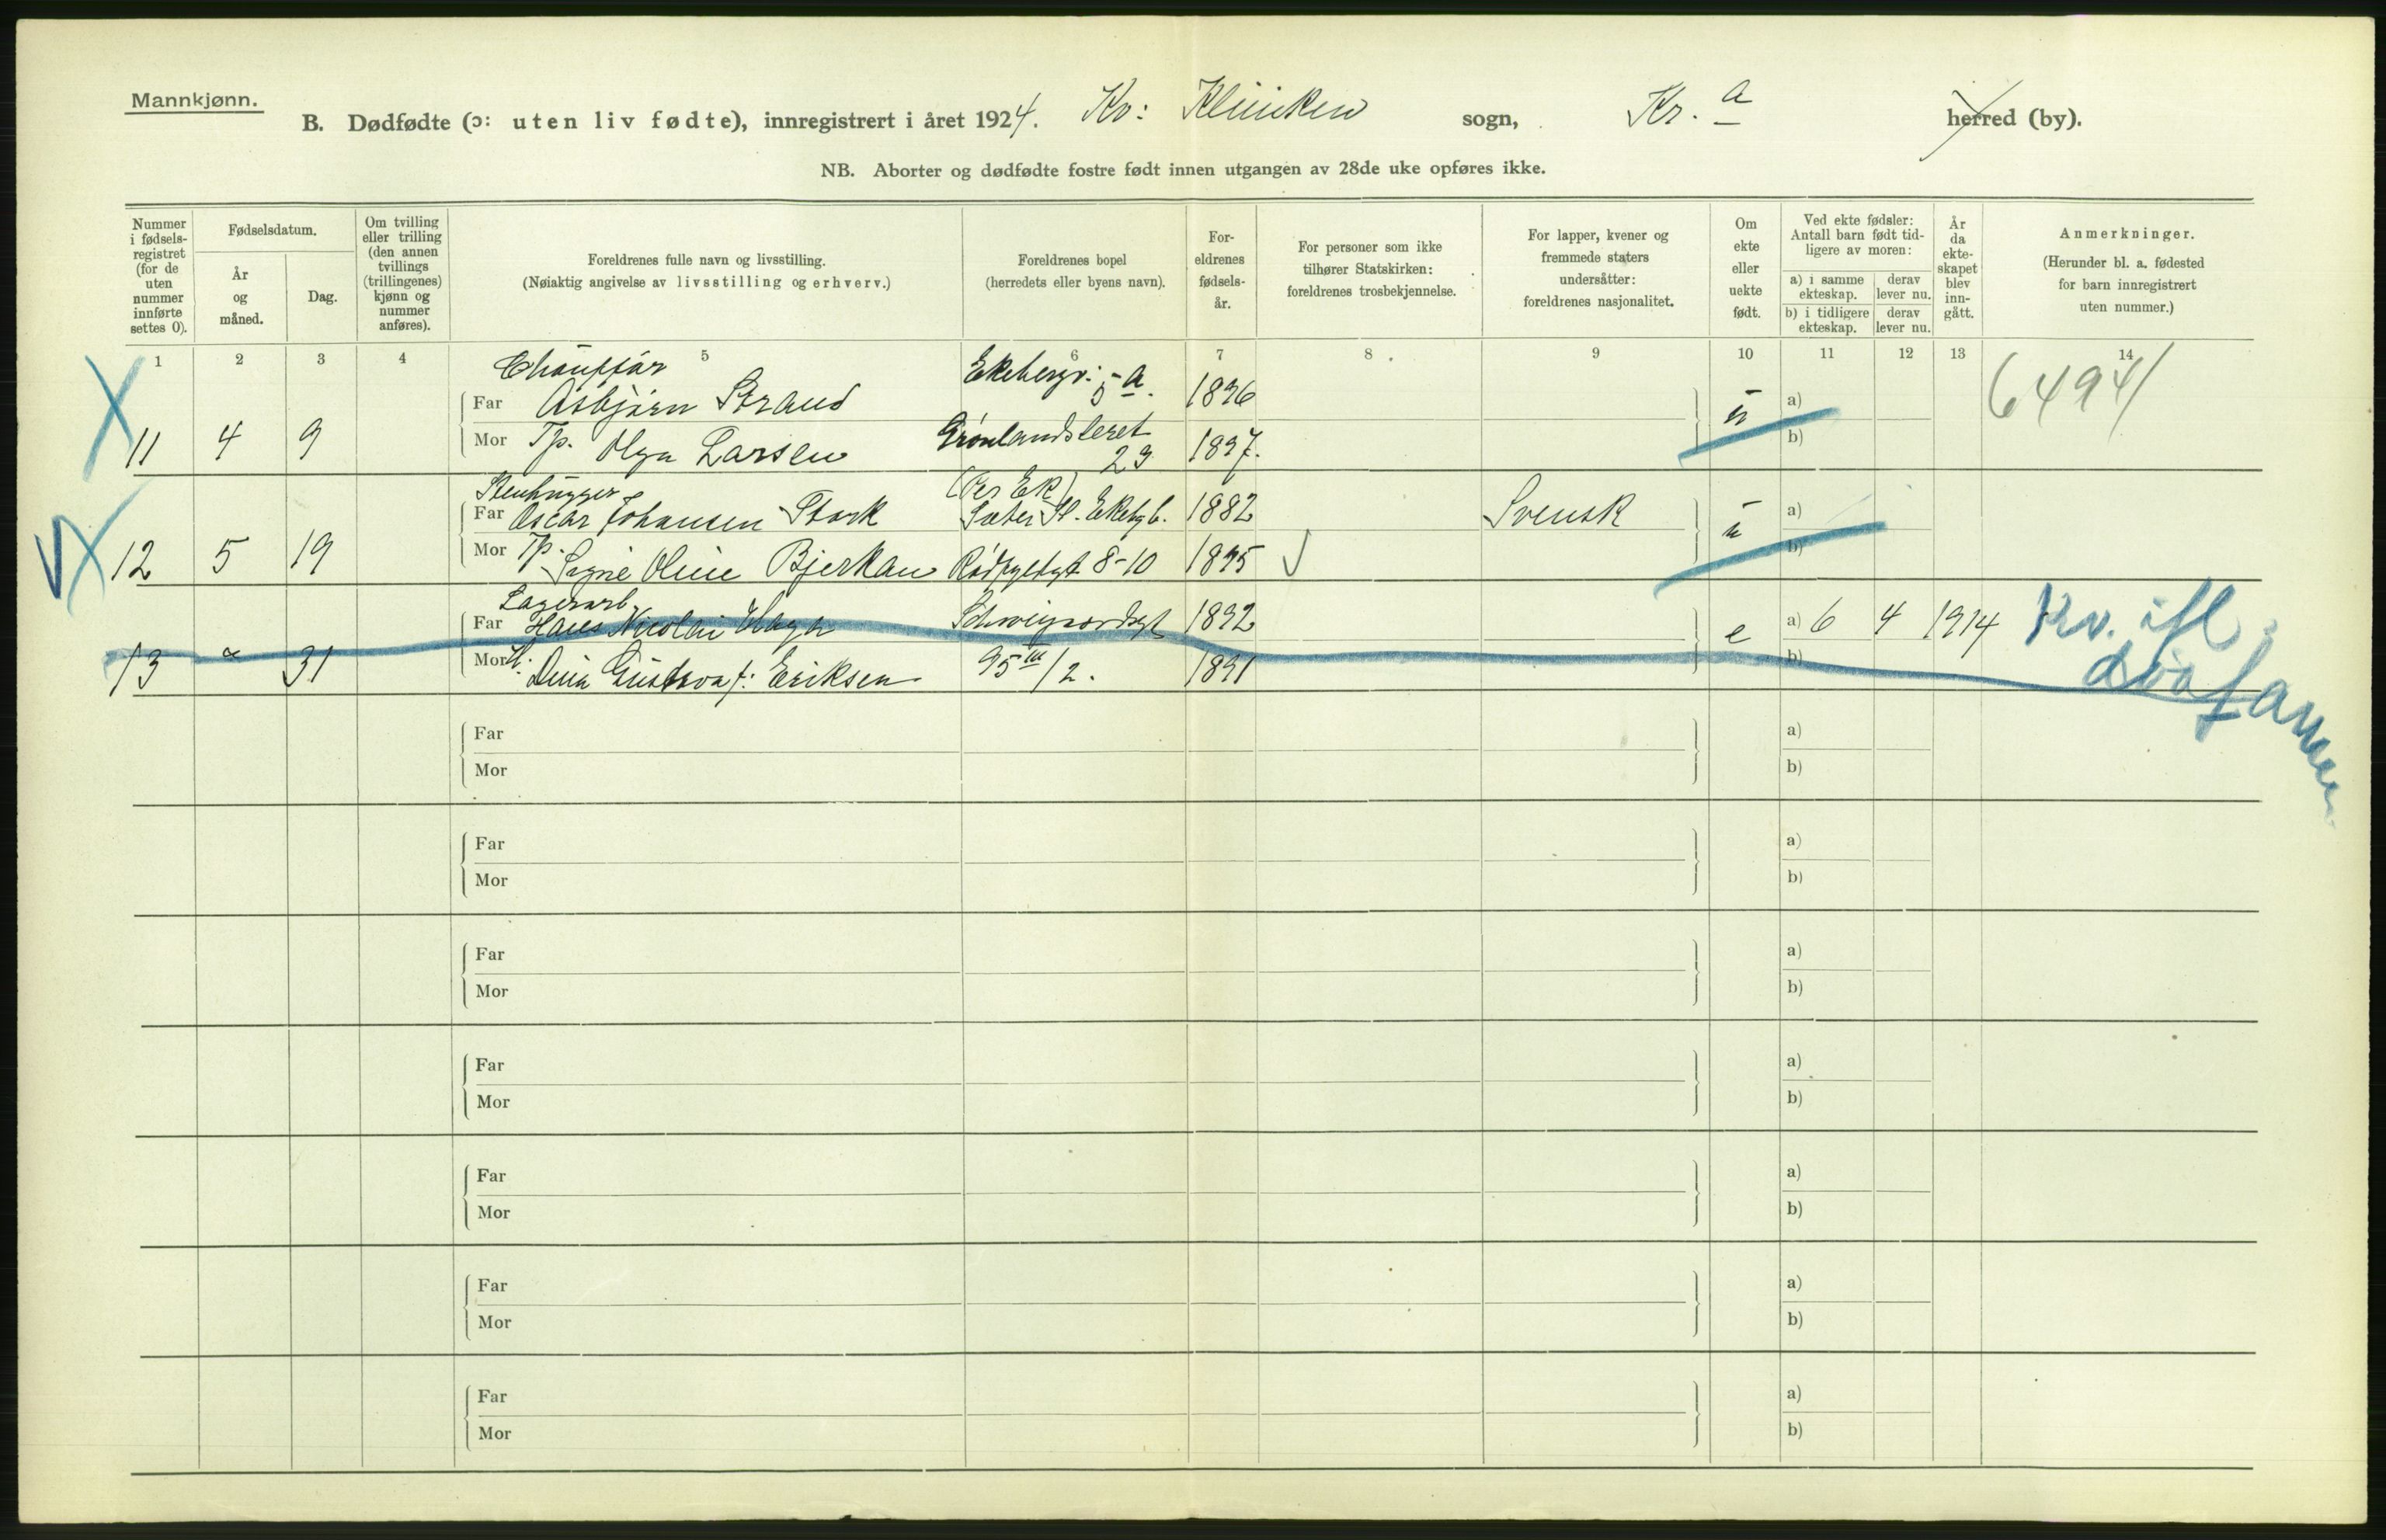 Mannkjønn.
B. Dødfødte (ɔ: uten liv fødte), innregistrert i året 1924. Kv: Kliniken sogn, Kr.a herred (by).
NB. Aborter og dødfødte fostre født innen utgangen av 28de uke opføres ikke.
Nummer i fødsels-registret (for de uten nummer innførte settes 0).
Fødselsdatum.
År og måned.
Dag.
Om tvilling eller trilling (den annen tvillings (trillingenes) kjønn og nummer anføres).
Foreldrenes fulle navn og livsstilling.
(Nøiaktig angivelse av livsstilling og erhverv.)
Foreldrenes bopel
(herredets eller byens navn).
For-eldrenes fødsels-år.
For personer som ikke tilhører Statskirken: foreldrenes trosbekjennelse.
For lapper, kvener og fremmede staters undersåtter: foreldrenes nasjonalitet.
Om ekte eller uekte født.
Ved ekte fødsler: Antall barn født tid-ligere av moren:
a) i samme ekteskap.
derav lever nu.
b) i tidligere ekteskap.
derav lever nu.
År da ekte-skapet blev inn-gått.
Anmerkninger.
(Herunder bl. a. fødested for barn innregistrert uten nummer.)
1 2 3 4 5 6 7 8 9 10 11 12 13 14
Chauffør Ekebergv. 5 a.
Far Asbjørn Strand 1896 a) 6494
11 4 9 Mor Tp. Olga Larsen Grønlandsleret 23 1897. u b)
Stenhugger
Far Oscar Johansen Stark Sæter St. Ekebgb. 1882 Svensk a)
12 5 19 Mor Tp. Signe Oline Bjerkan Rødfyldgt 8-10 1895 u b)
Lagerarb.
Far Hans Nicolai Haga Schweigaardsgt 1892 e a) 6 4 1914 Kv. ifl.
13 " 31 Mor H. Dina Gustava f: Eriksen 95 III/2. 1891 b)
Far a)
Mor b)
Far a)
Mor b)
Far a)
Mor b)
Far a)
Mor b)
Far a)
Mor b)
Far a)
Mor b)
Far a)
Mor b)